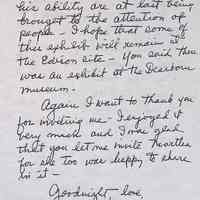 his ability are at last being
brought to the attention of
people - I hope that some of
this exhibit will remain at
the Edison site - You said there
was an exhibit at the Dearborn
museum.
Again I want to thank you
for inviting me - I enjoyed it
very much and I was glad
that you let me invite
for she too was happy to share
in it -
Goodnight, love,